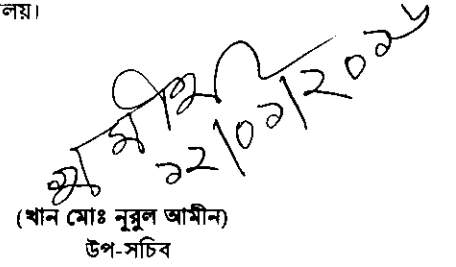 লয়।
১২/০১/২০১৬
(খান মোঃ নূরুল আমীন)
উপ-সচিব